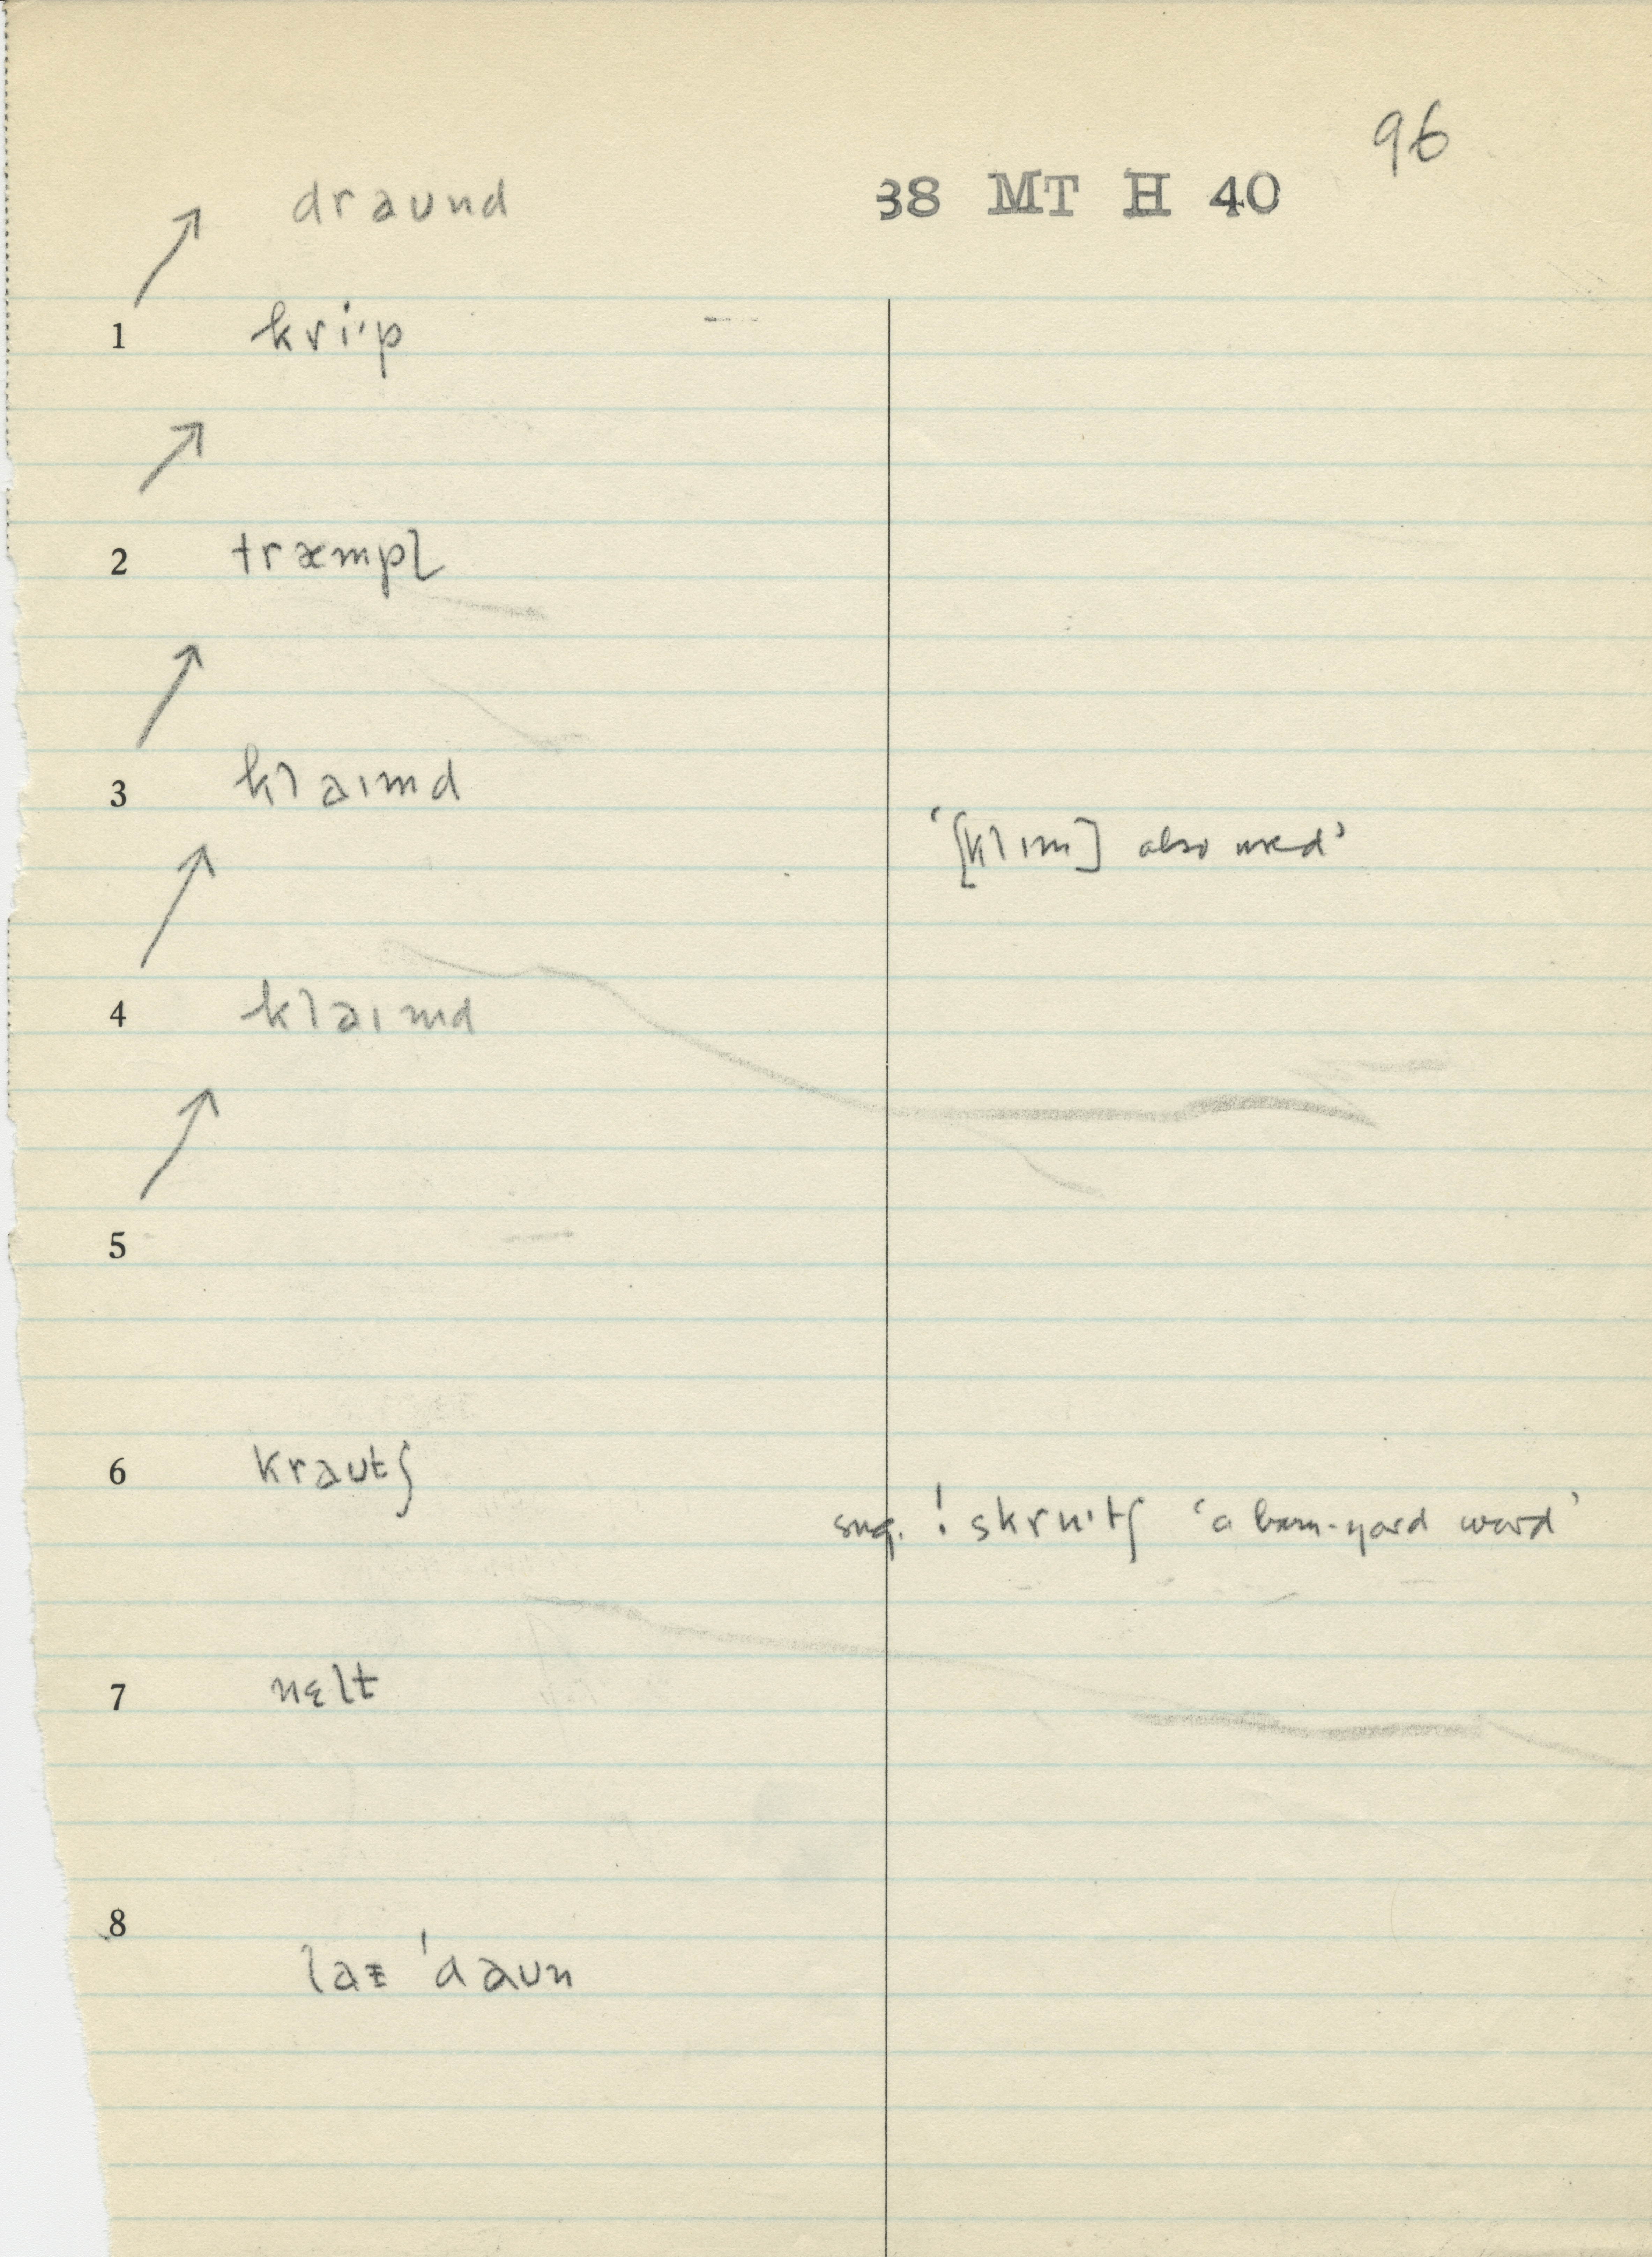 96
38 MT H 40
draund
1 kri·p
2 træmpl̩
3 klaɪmd
'[klɪm] also used'
4 klaɪmd
5
6 kraʊtʃ
sug. ! skrʉ·tʃ 'a barn-yard word'
7 nɛlt
8
laɪ 'daʊn